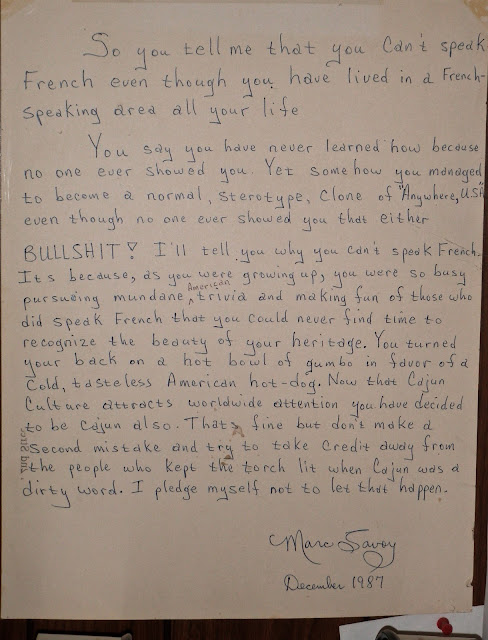 So you tell me that you can't speak
French even though you have lived in a French-
speaking area all your life
You say you have never learned how because
no one ever showed you. Yet somehow you managed
to become a normal, sterotype, clone of "Anywhere, U.S.A"
even though no one ever showed you that either
BULLSHIT! I'll tell you why you can't speak French.
Its because, as you were growing up, you were so busy
pursueing mundane American trivia and making fun of those who
did speak French that you could never find time to
recognize the beauty of your heritage. You turned
your back on a hot bowl of gumbo in favor of a
cold, tasteless American hot-dog. Now that Cajun
Culture attracts worldwide attention you have decided
to be Cajun also. Thats fine but don't make a
second mistake and try to take credit away from
the people who kept the torch lit when Cajun was a
dirty word. I pledge myself not to let that happen.
Marc Savoy
December 1987